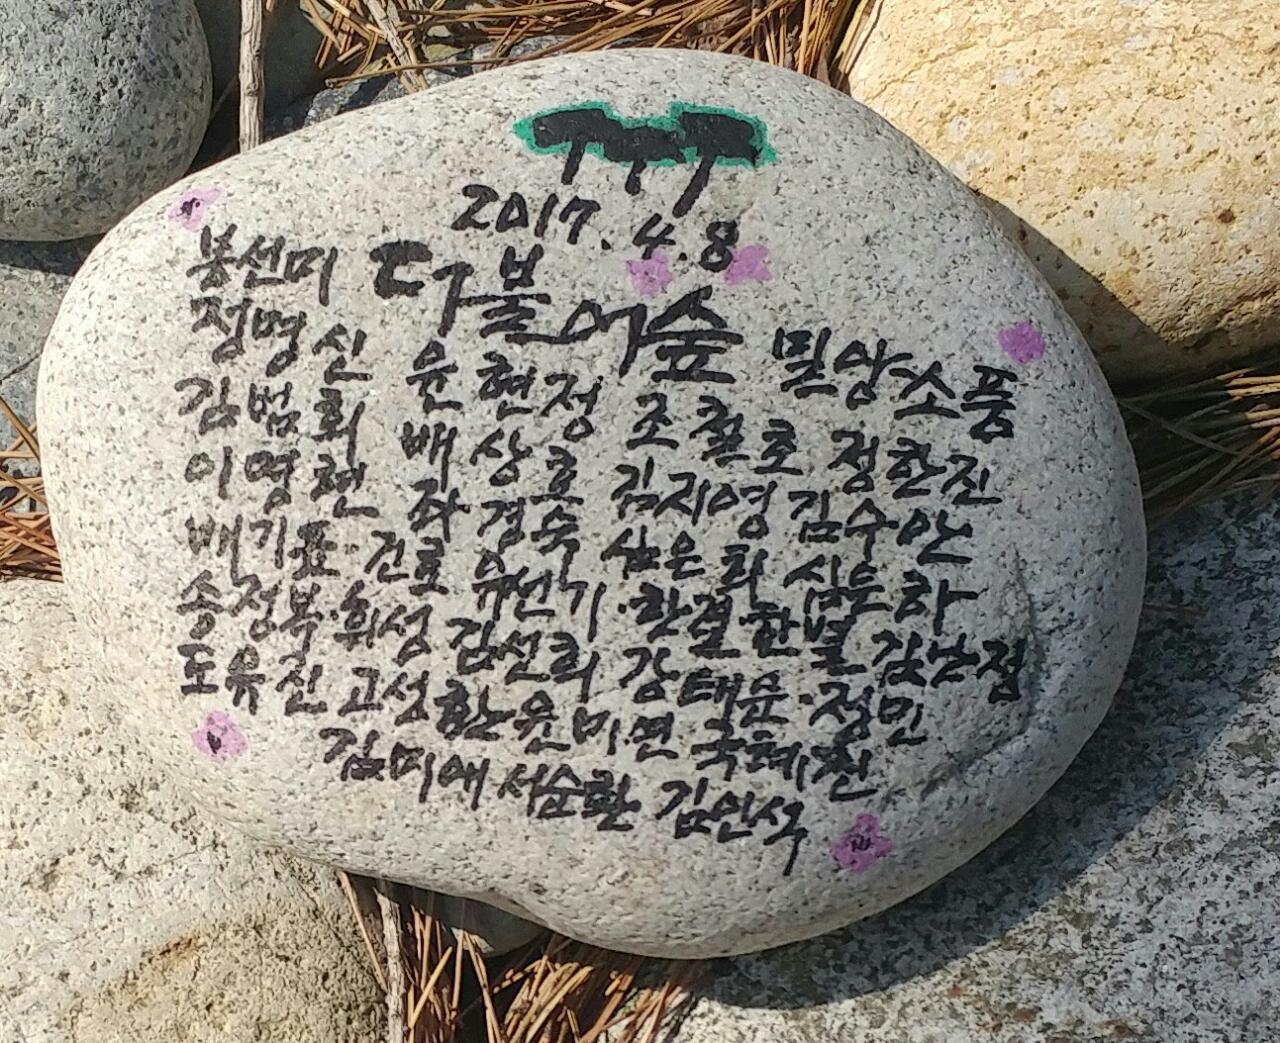 2017.4.8
봉선미 더불어숲 밀양소풍
정명신 윤현정 조철호 정한진
김범회 배상호 김지영 김수안
이영현 좌경숙 심은희 심동하
배기표·건호 유선기·한결·한별 김난정
송정복·희성 김선희 강태운·정민
도유진 고성환·윤미연 국혜진
김미애 서순환 김인석